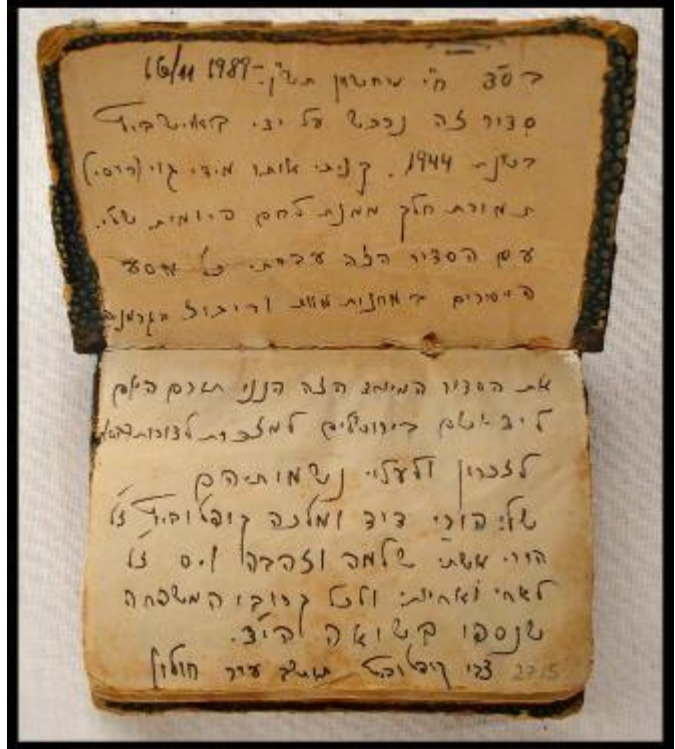 בס"ד ח"י מחשון תש"ן. 16/11 1989-
סידור זה נרכש על ידי באושביץ
בשנת 1944. קניתי אותו מידי גוי (רוסי)
תמורת חלק ממנת לחם היומית שלי.
עם הסידור הזה עברתי כל מסע
היסורים במחנות מוות וריכוז בגרמניה
את הסידור המיוחד הזה הנני תורם היום
ליד ושם בירושלים למזכרת לדורות הבאים
לזכרון ולעלוי נשמותיהם
של: הורי דוד ומלכה קופלוביץ ז"ל
הורי אשתי שלמה וזהבה ז"ל
לאחי ואחיותי ולכל קרובי המשפחה
שנספו בשואה הי"ד.
צבי קופלוביץ תושב עיר חולון 2715